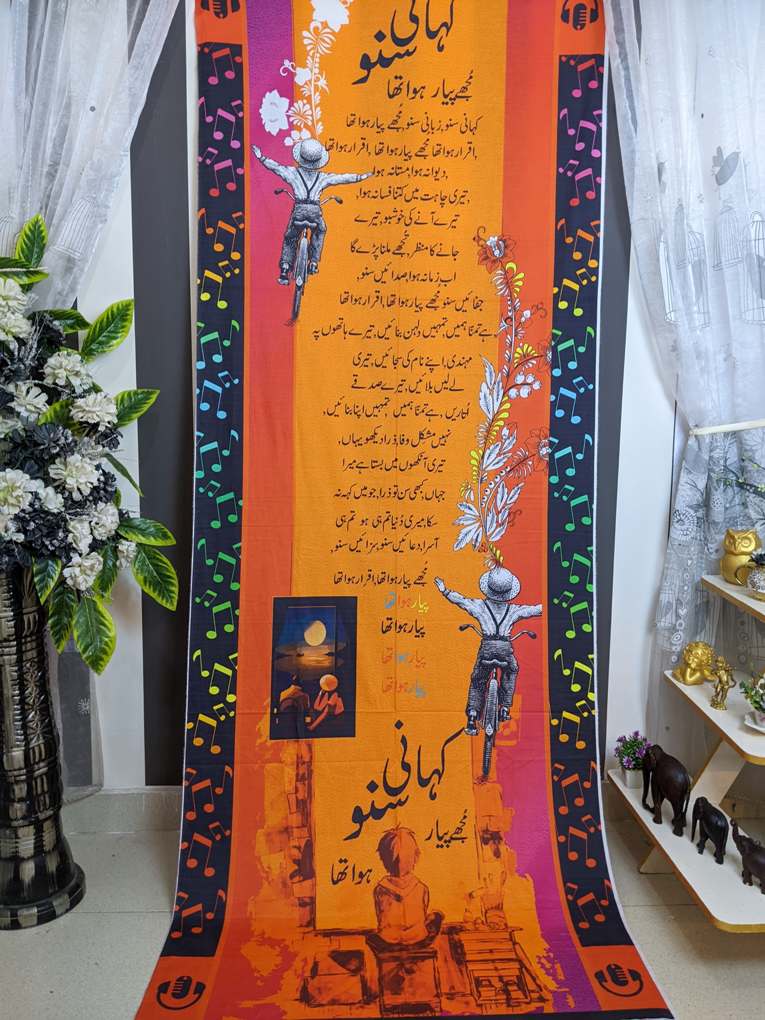 کہانی
سنو
مُجھے پیار ہوا تھا
کہانی سنو, زبانی سنو, مُجھے پیار ہوا تھا
,اقرار ہوا تھا مُجھے پیار ہوا تھا ,اقرار ہوا تھا
,دیوانہ ہوا, مستانہ ہوا
,تیری چاہت میں کتنا فسانہ ہوا
تیرے آنے کی خوشبو, تیرے
جانے کا منظر, تُجھے ملنا پڑے گا
اب زمانہ ہوا, صدائیں سنو,
جفائیں سنو مُجھے پیار ہوا تھا, اقرار ہوا تھا
ہے تمنّا ہمیں, تمہیں دلہن بنائیں, تیرے ہاتھوں پہ
مہندی, اپنے نام کی سجائیں, تیری
لے لیں بلائیں, تیرے صدقے
اُتاریں ,ہے تمنّا ہمیں تمہیں اپنا بنائیں,
نہیں مشکل وفا, ذرا دیکھو یہاں,
تیری آنکھوں میں بستا ہے میرا
جہاں, کبھی سن تو ذرا, جو میں کہہ نہ
سکا, میری دُنیا تم ہی ہو تم ہی
آسرا, دعائیں سنو, سزائیں سنو,
مُجھے پیار ہوا تھا, اقرار ہوا تھا
پیار ہوا تھا
پیار ہوا تھا
پیار ہوا تھا
پیار ہوا تھا
کہانی
سنو
مُجھے پیار
ہوا تھا